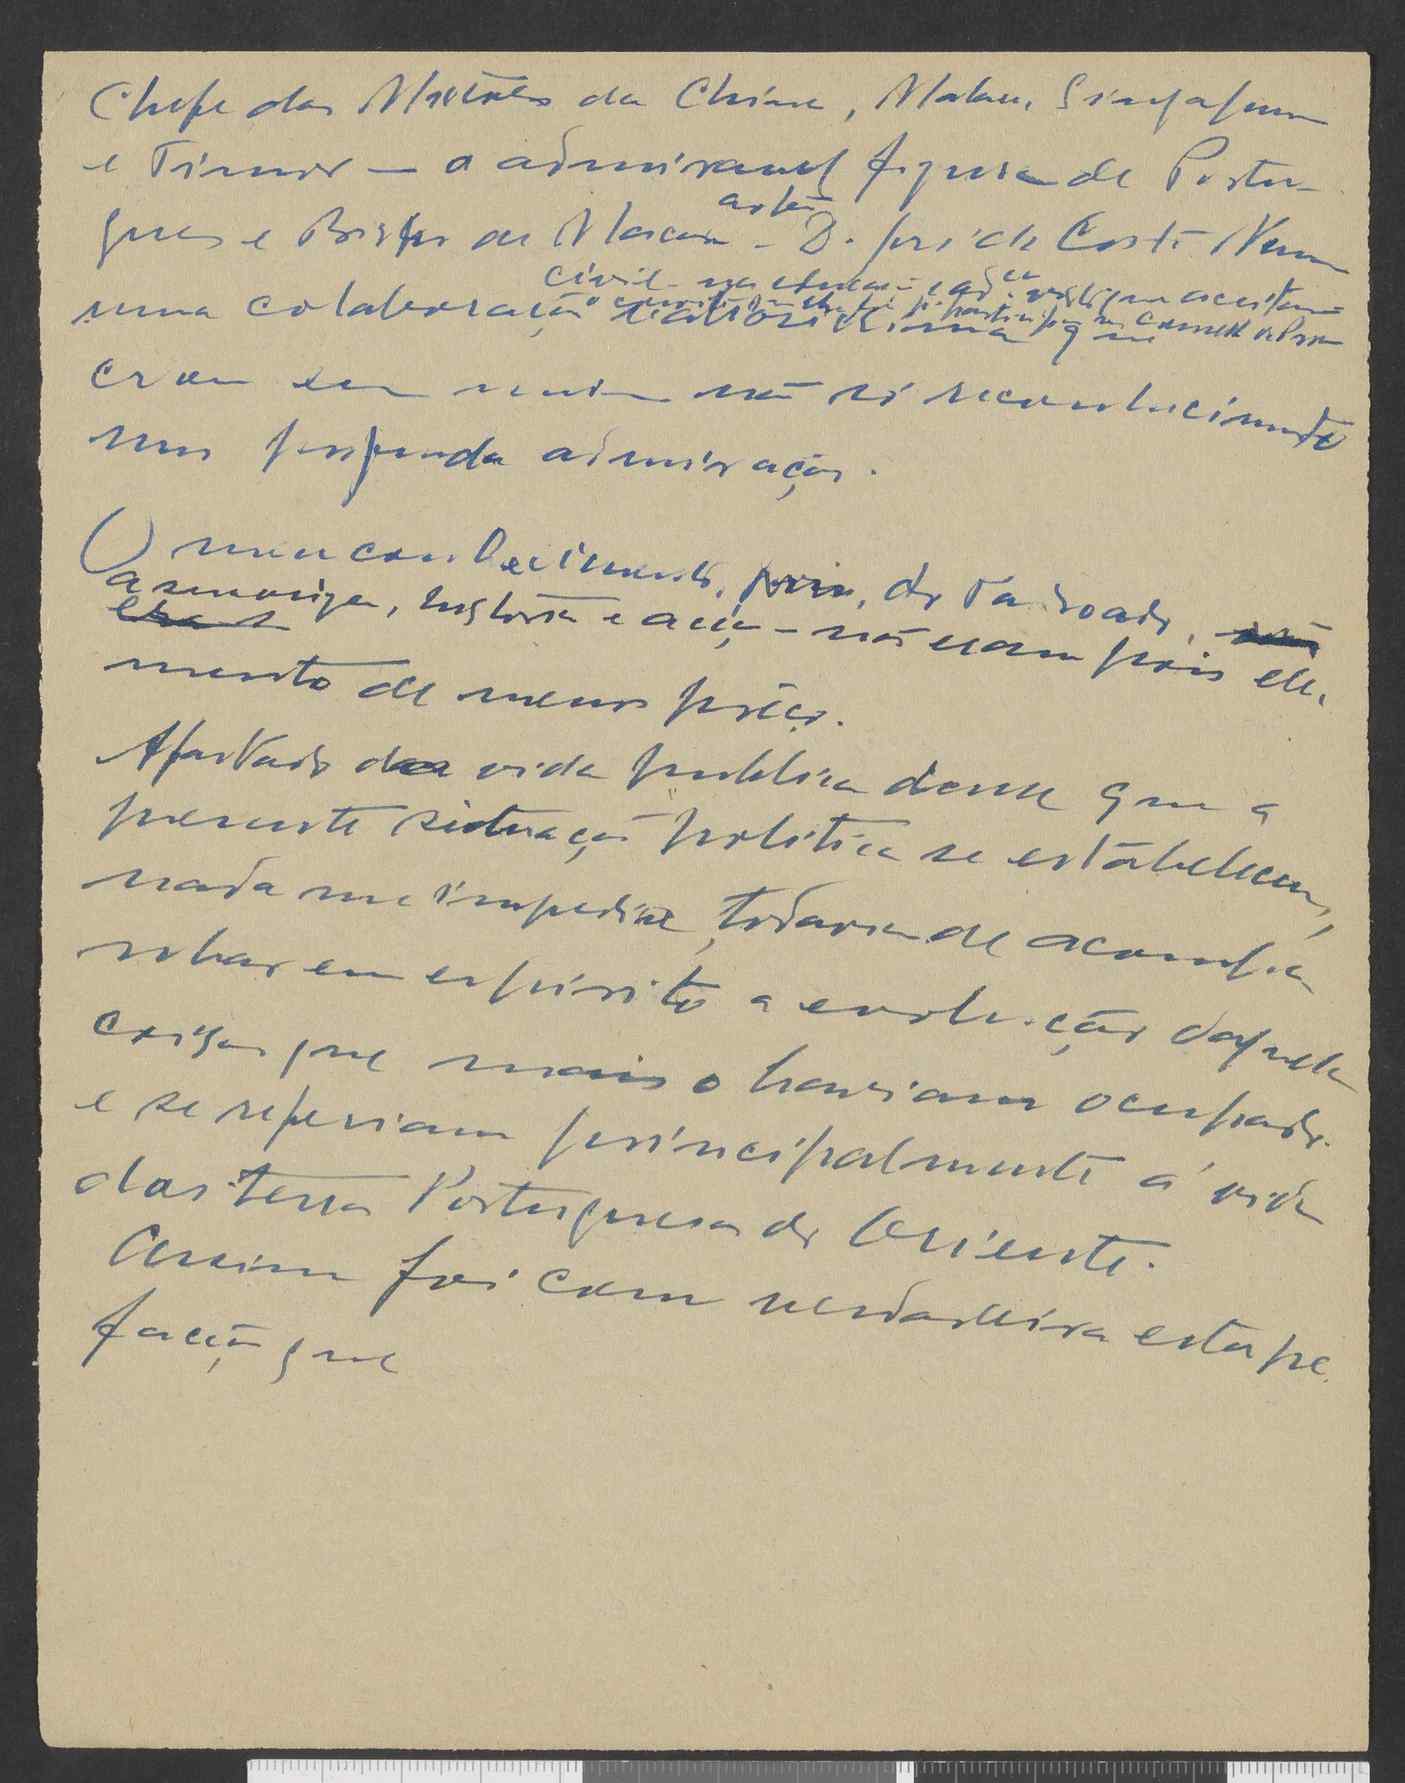 Chefe das Missões da China, Malaca, Singapura
e Timor — a admiravel figura de Portu-
guês e Bispo de Macau - D. José da Costa Nunes
civil - na
uma colaboração valiosissima que
criou em mim não só reconhecimento
mas profunda admiração.
O meu conhecimento, pois, do Padroado,
a sua origem, historia e acção - não eram pois ele-
mento de menos prêço.
Afastado da vida publica desde que a
presente situação politica se estabeleceu,
nada me impedira, todavia de acompa
nhar em espirito a evolução daquelas
coisas que mais o haviam ocupado
e se referiam principalmente á vida
das terras Portuguesas do Oriente.
Assim foi com verdadeira estupe
facção que